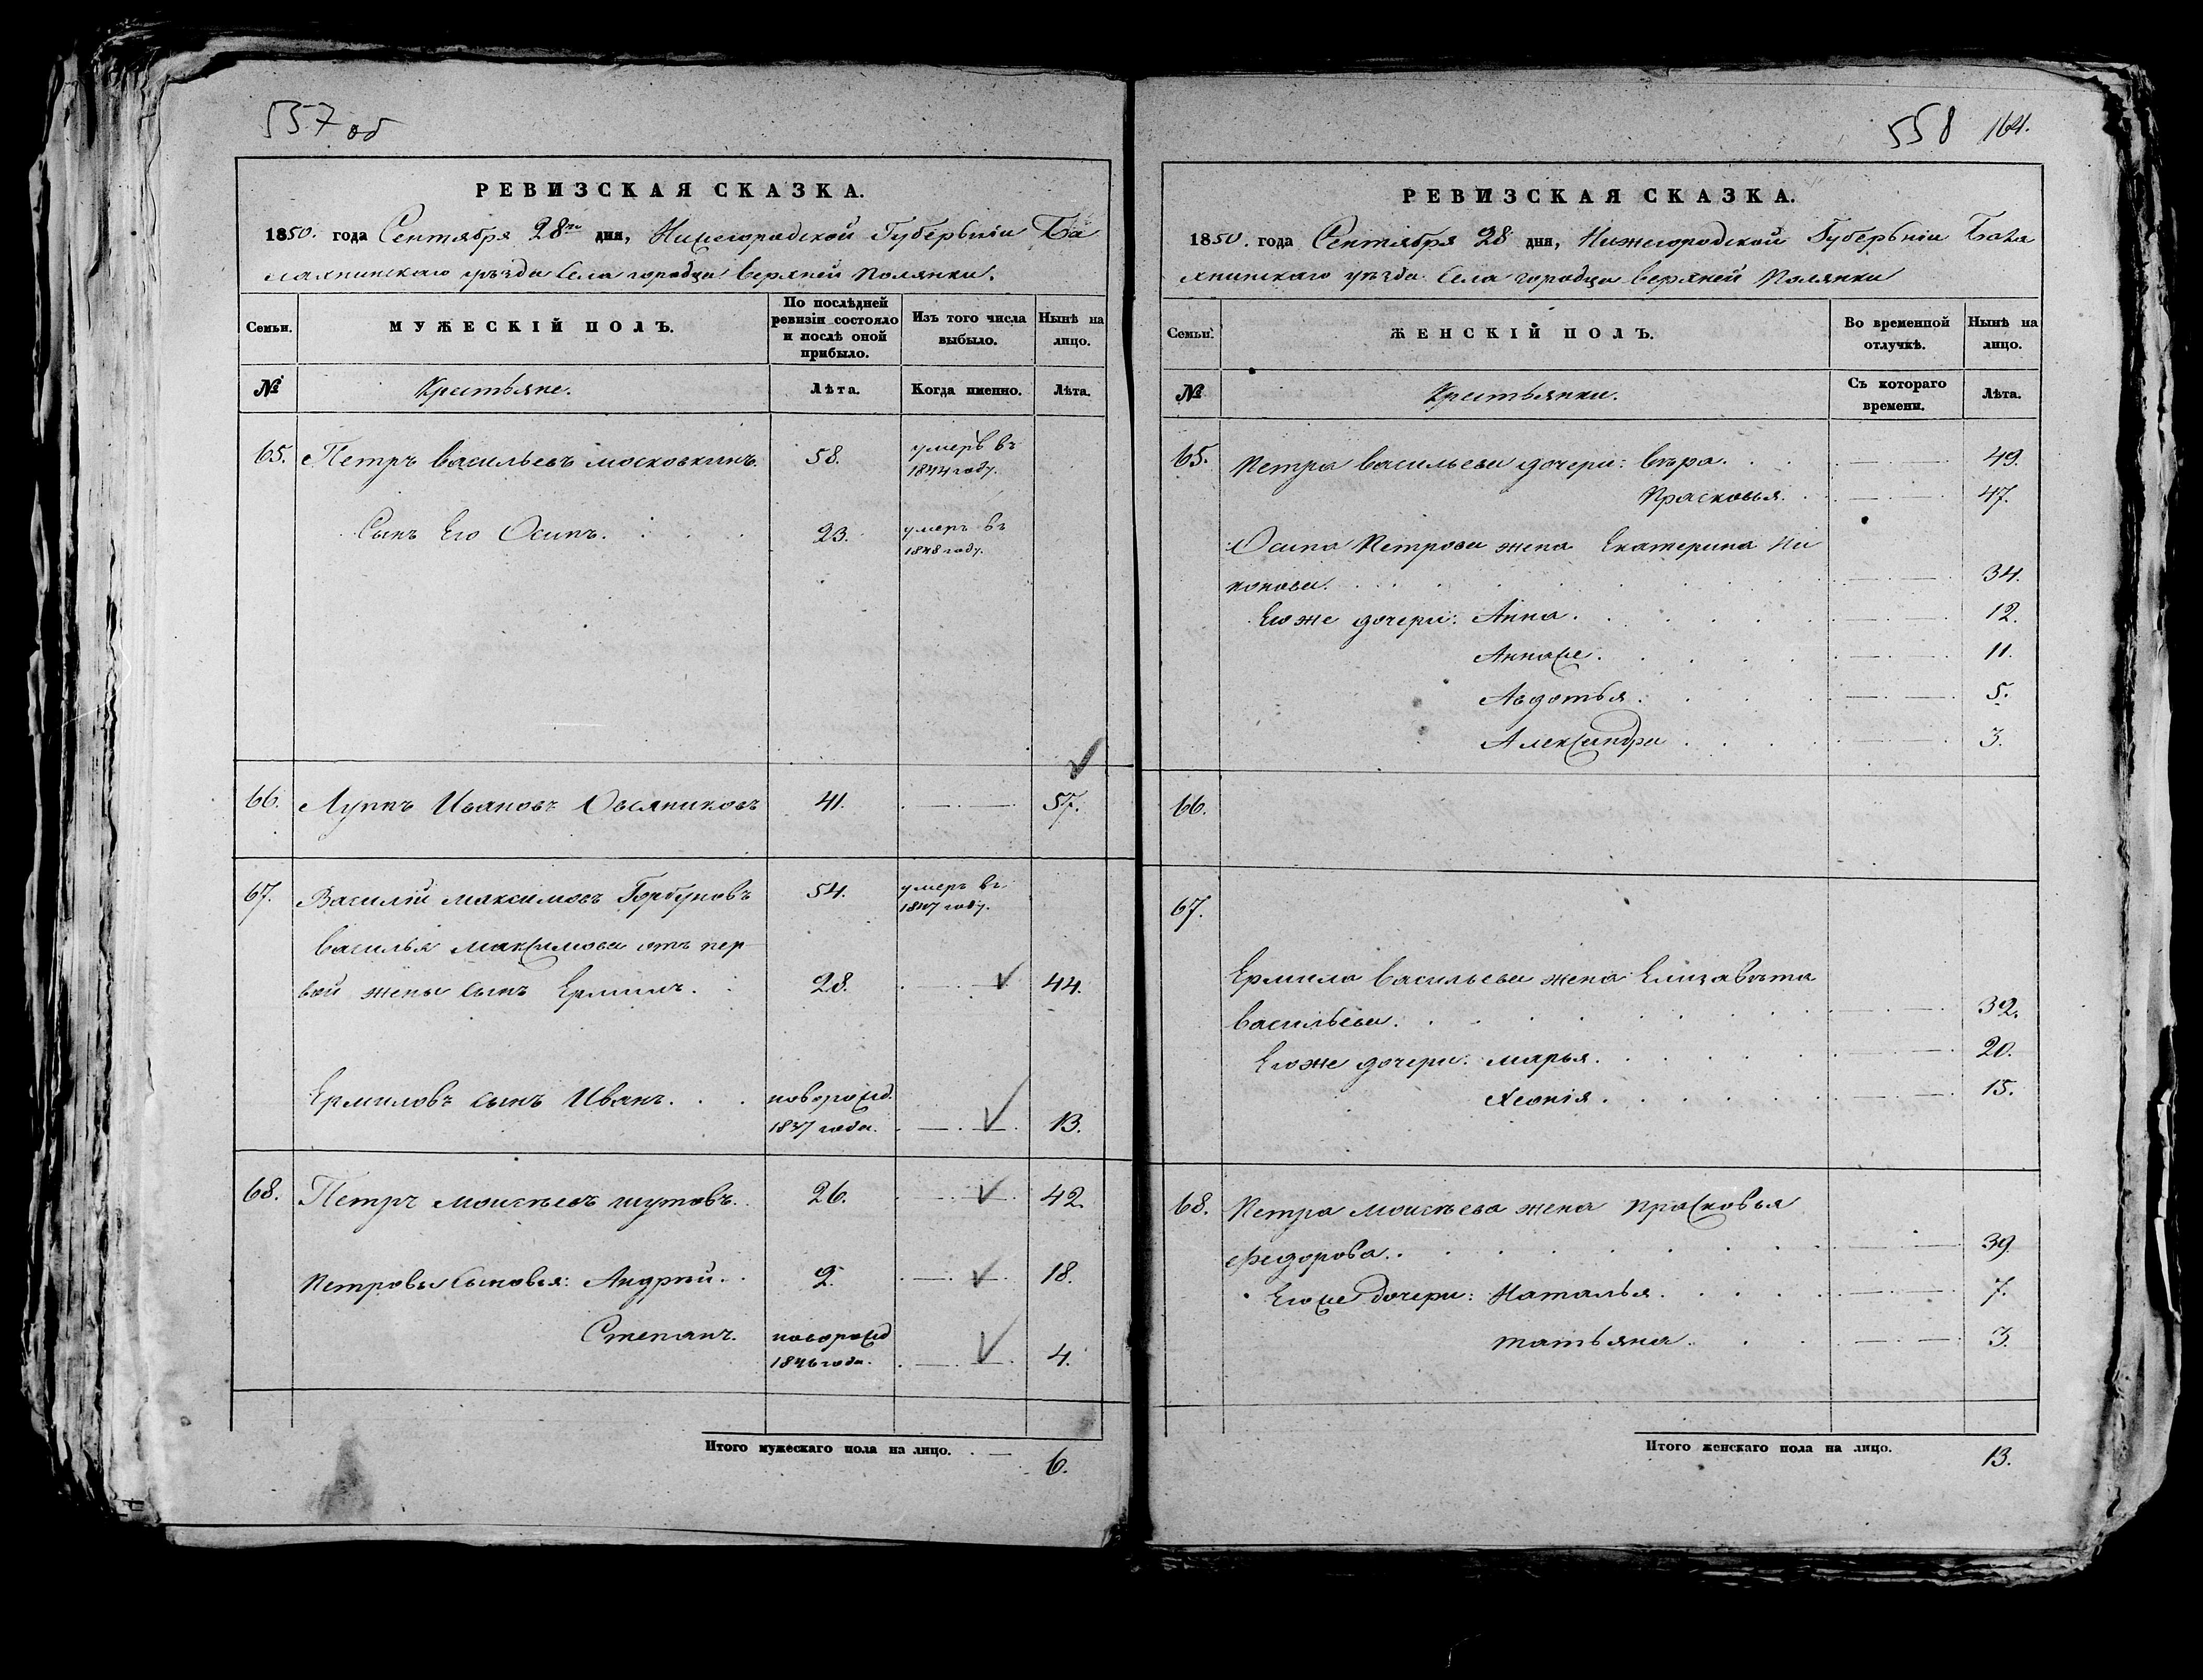 557 об
РЕВИЗСКАЯ СКАЗКА.
1850. года Сентября 28го дня, Нижегородской Губерніи Ба
лахнинскаго уѣзда Села городца верхней Полянки.
Семьи.
МУЖЕСКІЙ ПОЛЪ.
По послѣдней ревизіи состояло и послѣ оной прибыло.
Изъ того числа выбыло.
Ныиѣ на лицо.
№
Крестьяне.
Лѣта.
Когда именно.
Лѣта.
65. Петръ Васильевъ московкинъ. 58. умеръ въ
1844 году.
Сынъ Его Осипъ. 23. умеръ въ
1848 году.
66. Луппъ Ивановъ Овсяниковъ 41. 57.
67. Василій максимовъ Горбуновъ 54. умеръ въ
1847 году.
Василья максимова отъ пер
вой жены сынъ Ермилъ. 28. 44.
Ермиловъ сынъ Иванъ. новорожд.
1837 года. 13.
68. Петръ моисѣевъ шутовъ. 26. 42.
Петровы сыновья: Андрѣй. 2. 18.
Степанъ. новорожд
1846 года. 4.
Итого мужескаго пола на лицо. 6.
558 164.
РЕВИЗСКАЯ СКАЗКА.
1850. года Сентября 28 дня, Нижегородской Губерніи Бала
хнинскаго уѣзда Села городца верхней Полянки
Семьи.
ЖЕНСКІЙ ПОЛЪ.
Во временной отлучкѣ.
Нынѣ на лицо.
№
Крестьянки.
Съ котораго времени.
Лѣта.
65. Петра Васильева дочери: Вѣра. 49.
Прасковья. 47.
Осипа Петрова жена Екатерина Ни
конова. 34.
Его же дочери: Анна. 12.
Анна же. 11.
Авдотья. 5.
Александра. 3.
66.
67.
Ермила Васильева жена Елизавѣта
Васильева. 32.
Его же дочери: марья. 20.
Хеонія. 15.
68. Петра моисѣева жена Прасковья
Федорова. 39.
Его же дочери: Наталья. 7.
татьяна. 3.
Итого женскаго пола на лицо. 13.